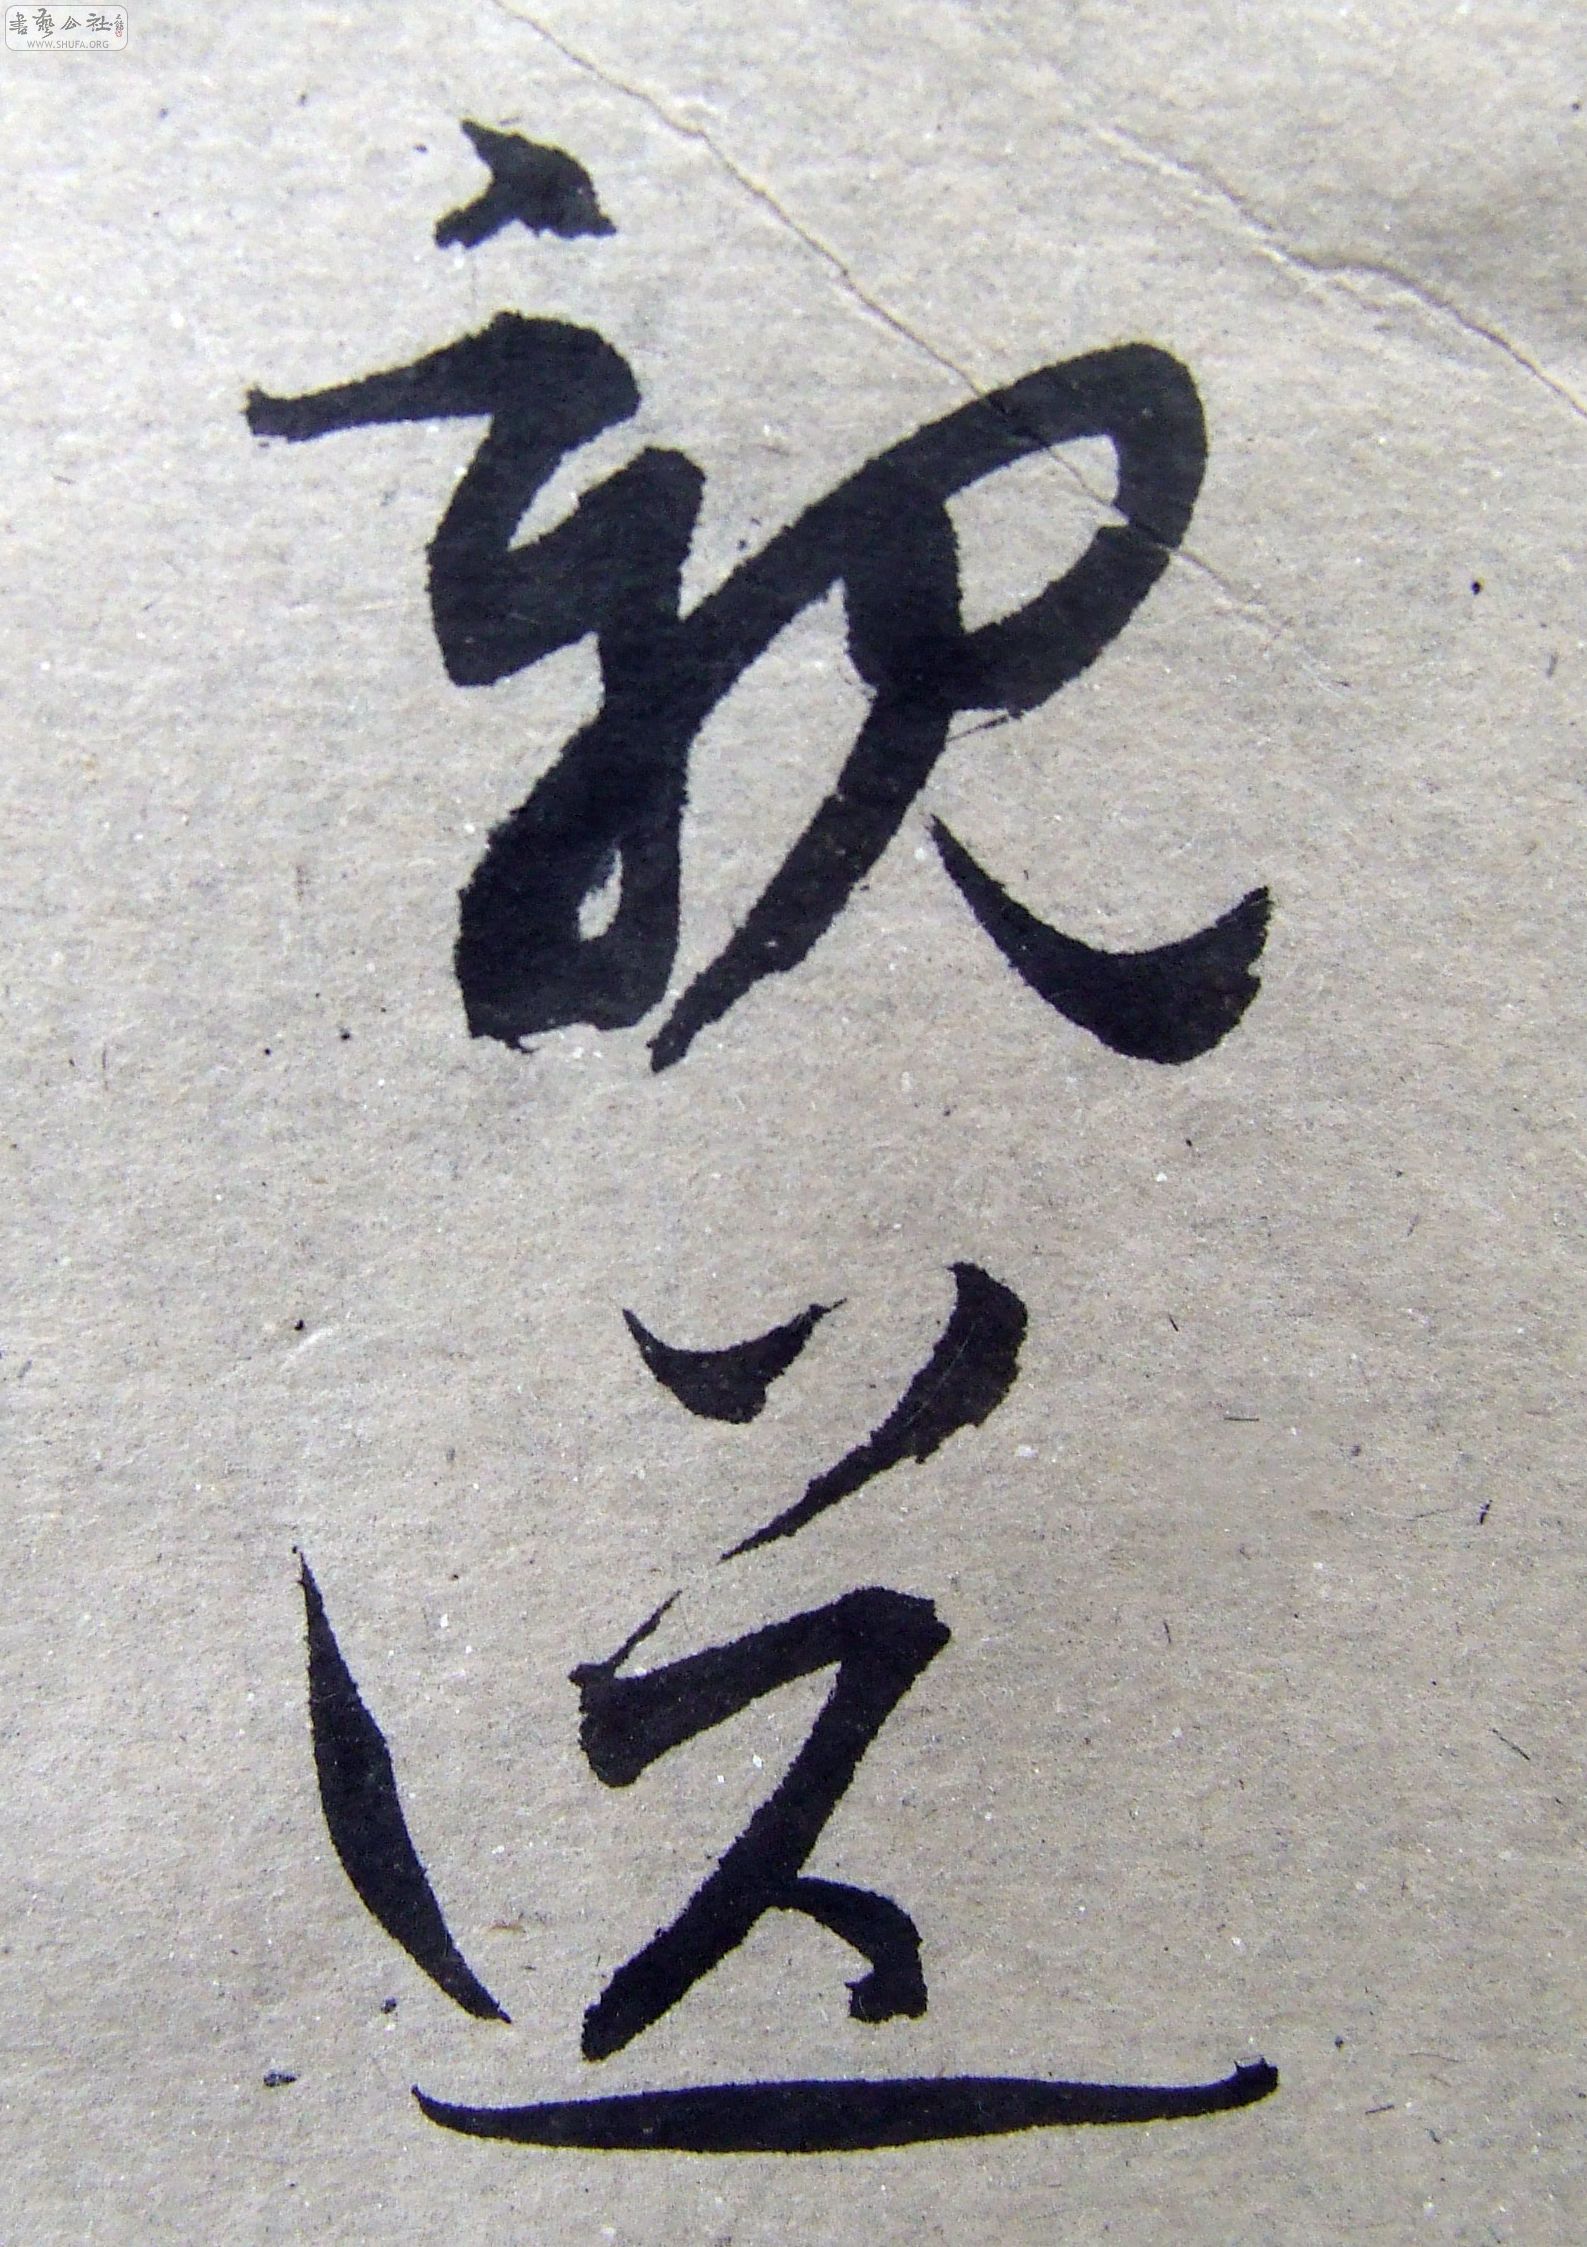 書藝公社
WWW.SHUFA.ORG
親
送